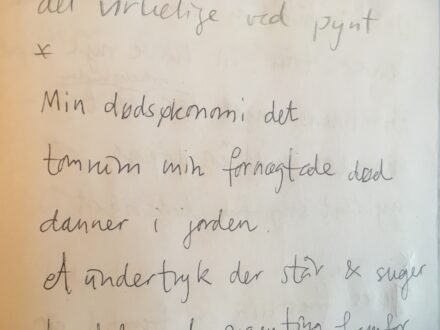 det virkelige ved pynt
*
Min dødsøkonomi det
tomrum min fornægtede død
danner i jorden.
et undertryk der står & suger